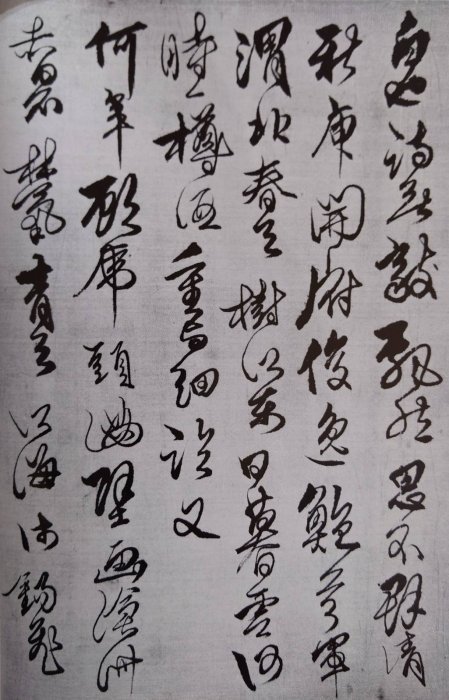 白也詩無敵飄然思不群清
新庾開府俊逸鮑參軍
渭北春天樹江東日暮雲何
時一樽酒重與細論文
何年顧虎頭滿壁畫滄洲
赤日石林氣青天江海流錫飛